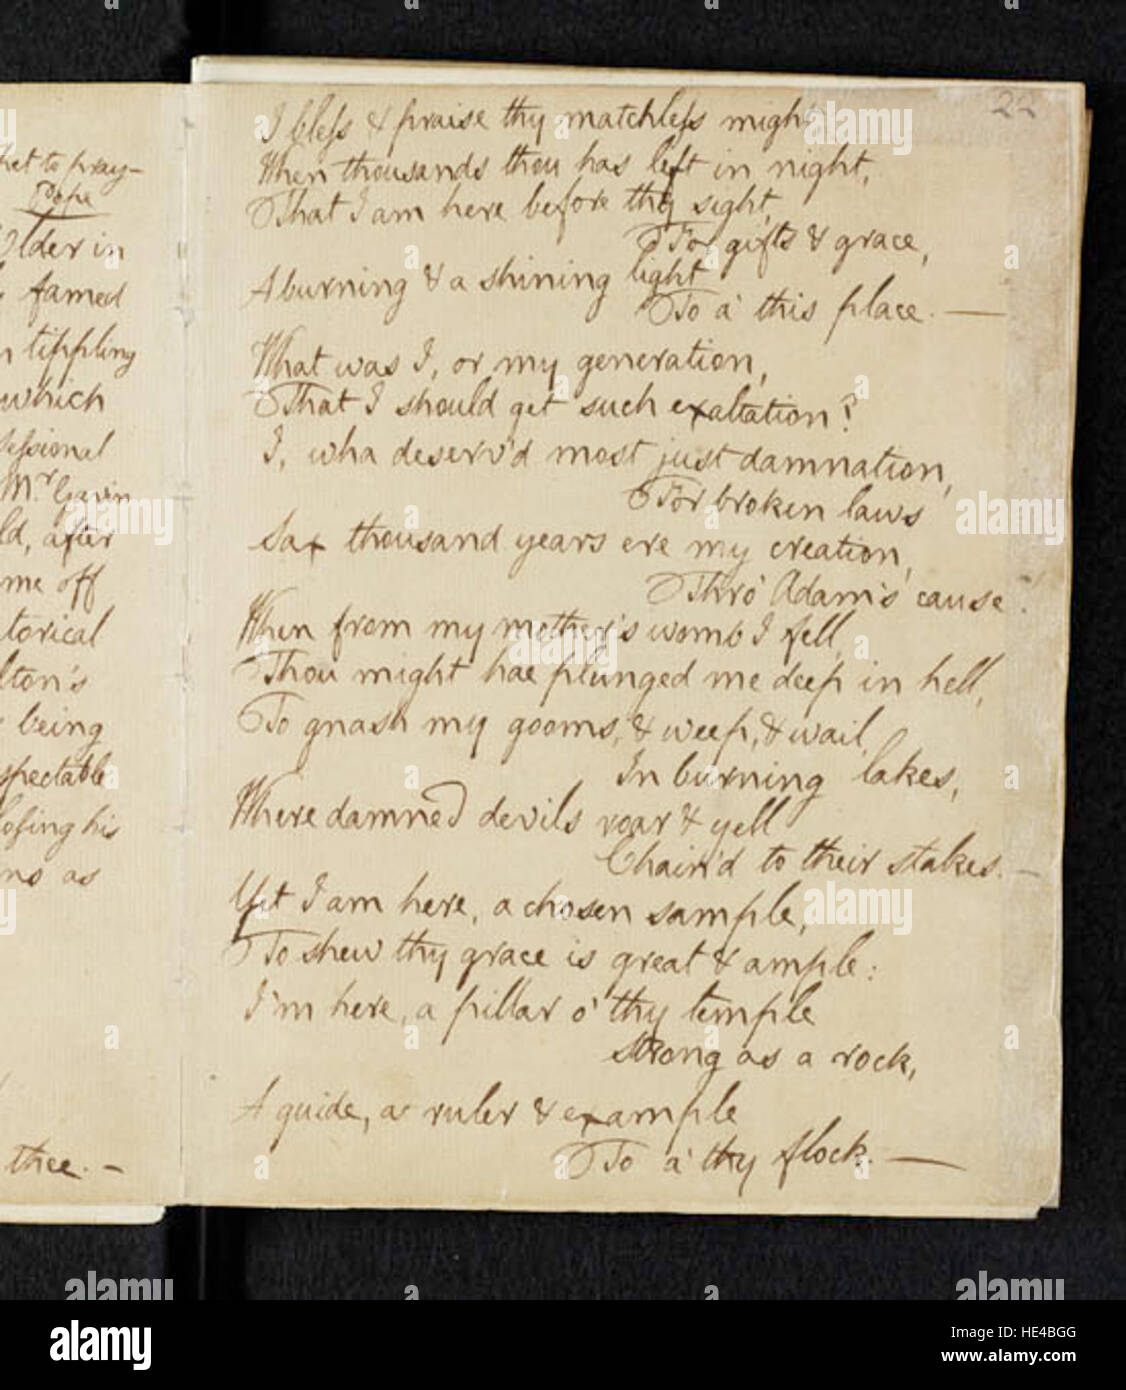 ket to pray—
Pope
Older in
famed
tippling
which
sessional
Mr. Gavin
ld, after
me off
torical
lton's
being
spectable
losing his
ns as
thee. —
22
I bless & praise thy matchless might
When thousands thou has left in night,
That I am here before thy sight,
For gifts & grace,
A burning & a shining light
To a' this place. —
What was I, or my generation,
That I should get such exaltation?
I, wha deserv'd most just damnation,
For broken laws
Sax thousand years ere my creation,
Thro' Adam's cause!
When from my mother's womb I fell,
Thou might hae plunged me deep in hell,
To gnash my gooms, & weep, & wail,
In burning lakes,
Where damned devils roar & yell
Chain'd to their stakes. —
Yet I am here, a chosen sample,
To shew thy grace is great & ample:
I'm here, a pillar o' thy temple
strong as a rock,
A guide, a ruler & example
To a' thy flock. —
alamy
HE4BGG
www.alamy.com